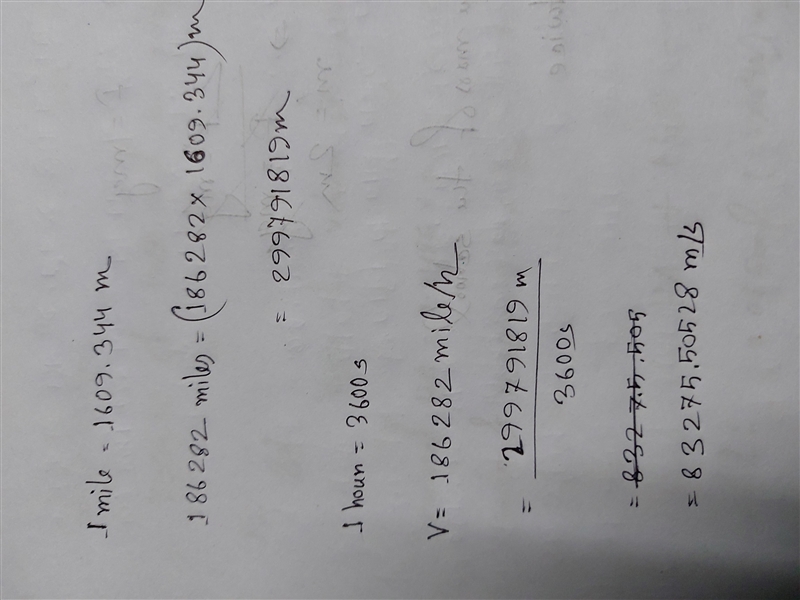 1 mile = 1609.344 m
186282 miles = (186282 × 1609.344) m
= 299791819 m
1 hour = 3600 s
V = 186282 mile/h
= 299791819 m
3600 s
= 83275.505
= 83275.50528 m/s